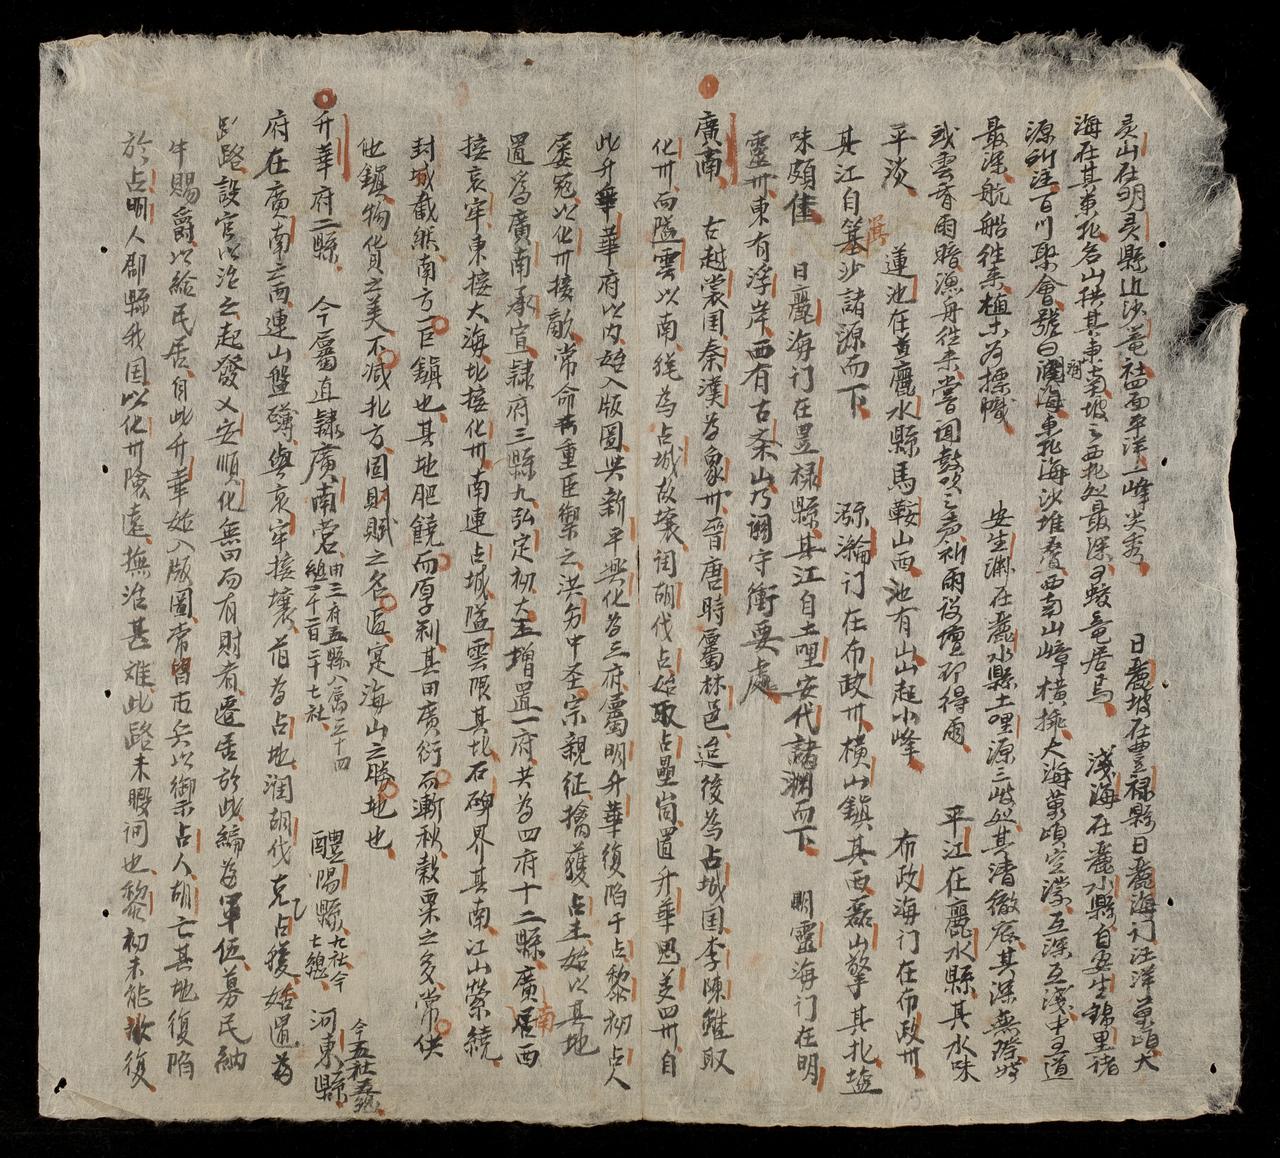 灵山在明灵縣近沙菴社忽而平洋一峰尖秀 日麗坡在豊禄縣日麗海门汪洋萬頃大
海在其東北名山拱其東南坡之西北処最深有蛟竜居焉 淺海在麗水縣自安生錦里诸
源所注百川聚會號曰濶海東北海沙堆叠西南山嶂横排大海萬頃空濛互深互淺中有道
最深航船往来植木为摽幟 安生淵在麗水縣土哩源三岐処其清徹底其深無際
或雲昏雨暗漁舟往来嘗闻鼓吹之声祈雨设壇即得雨 平江在麗水縣其水味
平淡 蓮池在麗水縣馬鞍山西池有山山起小峰 布政海门在布政卅
其江自箓沙諸源而下 瀰瀹门在布政卅横山鎮其西磊山擎其北塩
味頗佳 日麗海门在豊禄縣其江自土哩安代諸渊而下 明靈海门在明
靈卅東有浮岸西有古斋山乃關守衝要處
廣南 古越裳国秦漢为象卅晋唐時屬林邑迨後为占城国李陳雖取
化卅而隘雲以南猶为占城故壤闰胡伐占始取占壘岗置升華思義四卅自
此升華華府以内始入版圖與新平興化为三府屬明升華復陷于占黎初占人
屡冦以化卅接敵常命重臣禦之洪多中圣宗親征擒獲占主始以其地
置为廣南承宣隷府三縣九弘定初太王增置一府共为四府十二縣廣南居西
接哀牢東接大海北接化卅南連占城隘雲限其北石碑界其南江山縈繞
封域截然南方巨鎮也其地肥饒而厚利其田廣衍而漸秋穀粟之多常供
他鎮物货之美不减北方固財賦之名區寔海山之勝地也
升華府二縣 今屬直隷廣南营由三府五縣八屬三十四總一千二百二十七社 醴陽縣九社今七總 河東縣今五社五總
府在廣南之西連山盤礴與哀牢接壤昔为占地润胡伐克占獲始置为
升路設官以治之起發乂安順化無田而有財者遷居於此編为軍伍募民納
牛賜爵以给民居自此升華始入版圖常習市兵以御占人胡亡其地復陷
於占明人郡縣我国以化卅險遠撫治甚难此路未暇问也黎初未能收復